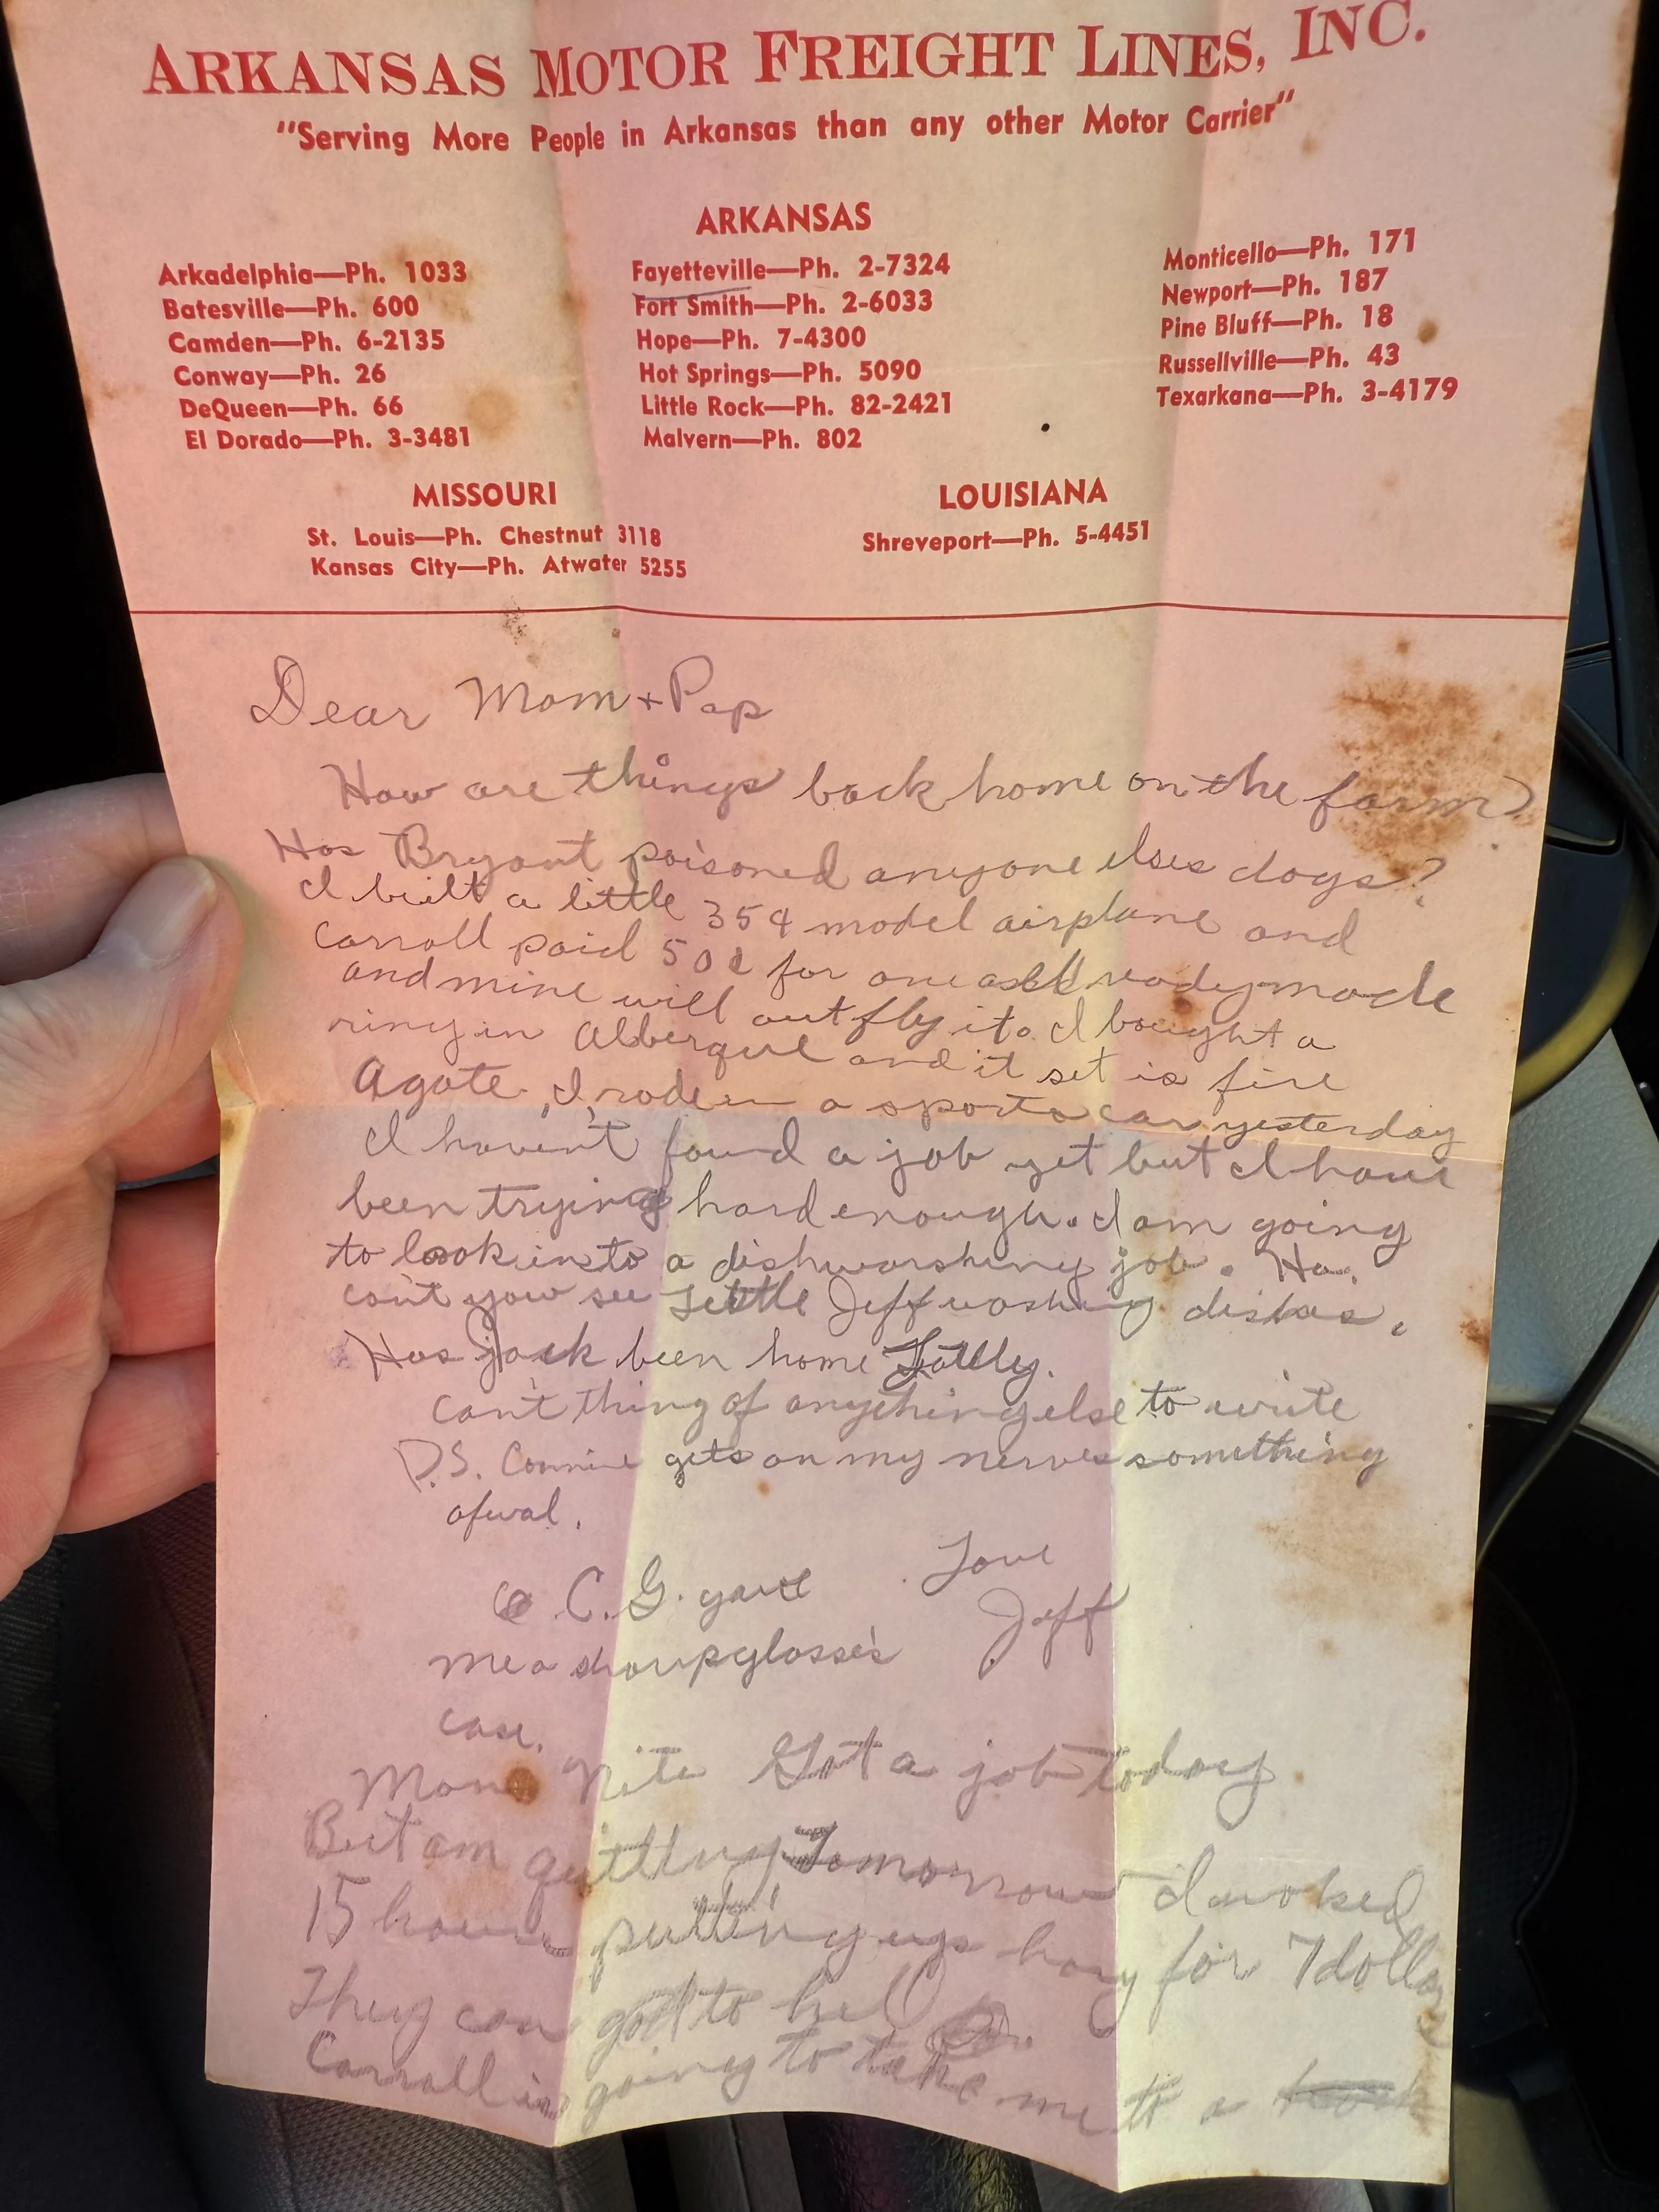 ARKANSAS MOTOR FREIGHT LINES, INC.
"Serving More People in Arkansas than any other Motor Carrier"
ARKANSAS
Arkadelphia—Ph. 1033
Batesville—Ph. 600
Camden—Ph. 6-2135
Conway—Ph. 26
DeQueen—Ph. 66
El Dorado—Ph. 3-3481
Fayetteville—Ph. 2-7324
Fort Smith—Ph. 2-6033
Hope—Ph. 7-4300
Hot Springs—Ph. 5090
Little Rock—Ph. 82-2421
Malvern—Ph. 802
Monticello—Ph. 171
Newport—Ph. 187
Pine Bluff—Ph. 18
Russellville—Ph. 43
Texarkana—Ph. 3-4179
MISSOURI
St. Louis—Ph. Chestnut 3118
Kansas City—Ph. Atwater 5255
LOUISIANA
Shreveport—Ph. 5-4451
Dear Mom + Pap
How are things back home on the farm?
Has Bryant poisoned anyone elses dogs?
I built a little 35¢ model airplane and
Carroll paid 50¢ for one ready made
and mine will out fly it. I bought a
ring in Alberque and it set is fire
Agate. I rode in a sports car yesterday
I haven't found a job yet but I have
been trying hard enough. I am going
to look into a dishworshing job. Ha.
can't you see Little Jeff washing dishes.
Has Jack been home Lattly.
can't thing of anything else to write
P.S. Connie gets on my nerves something
afwal.
Love
Jeff
C.G. gave
me a sharp glasses
case.
Mon Nite Got a job today
But am quitting Tomorrow I worked
15 hours putting up hay for 7 dollars
They can go to hel
Carroll is going to take me to a